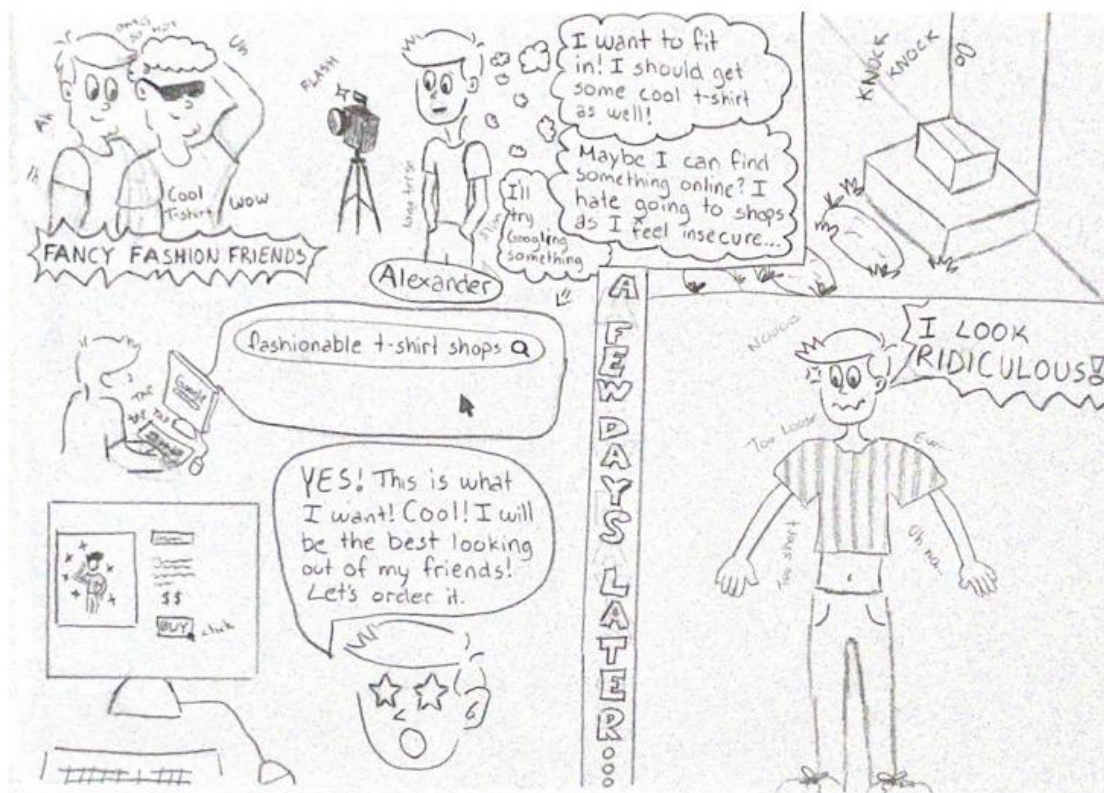 omg
so hot
Uh
Ah
Cool
T-shirt
WOW
FANCY FASHION FRIENDS
FLASH
Alexander
Slim
I want to fit
in! I should get
some cool t-shirt
as well!
Maybe I can find
something online? I
hate going to shops
as I feel insecure...
I'll
try
Googling
something
KNOCK
KNOCK
fashionable t-shirt shops
TAP
TAP
TAP
Google
YES! This is what
I want! Cool! I will
be the best looking
out of my friends!
Let's order it.
$$
BUY
click
A FEW DAYS LATER...
I LOOK
RIDICULOUS!
Noooo
Too Loose
Eww
Too short
Oh no